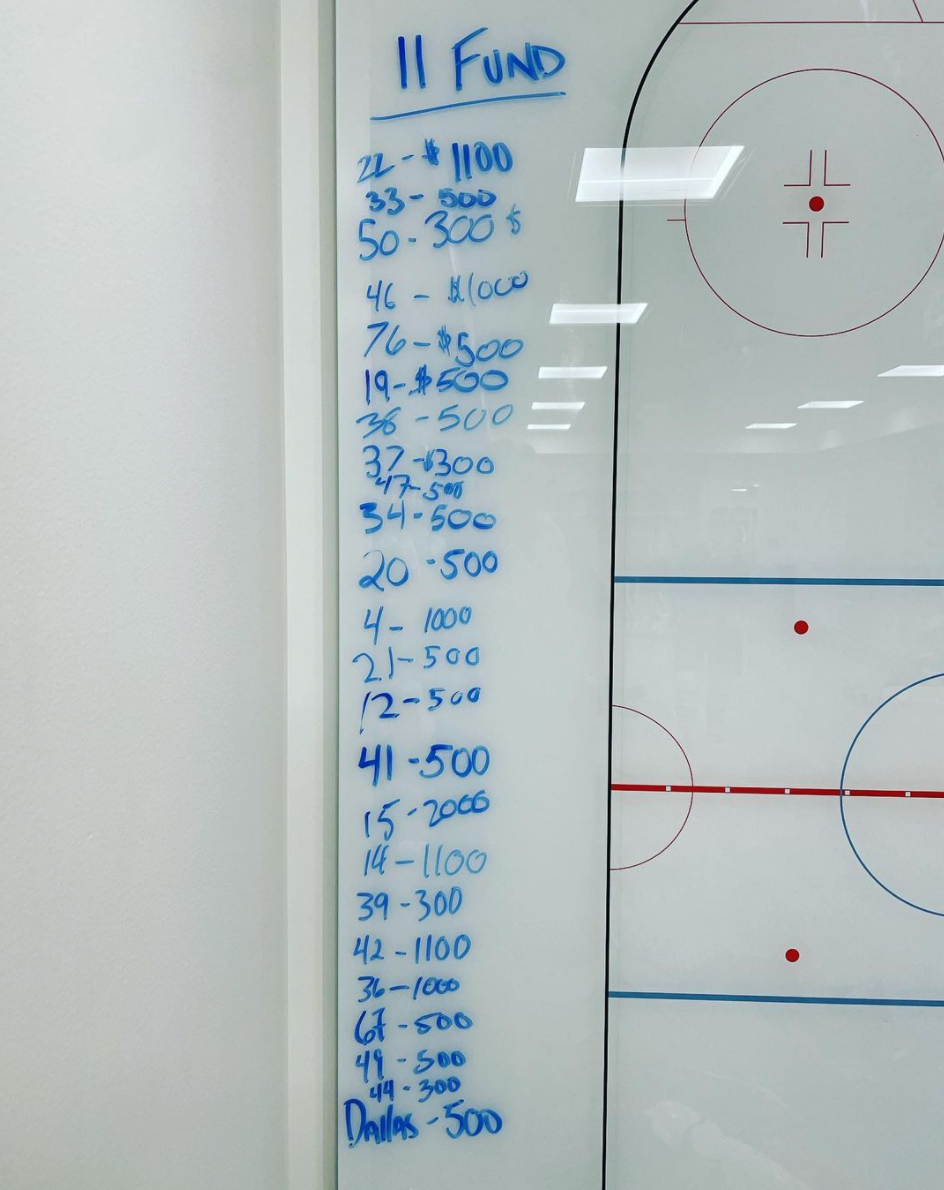 11 FUND
22 - $ 1100
33 - 500
50 - 300 $
46 - $1000
76 - $500
19 - $500
38 - 500
37 - $300
47 - 500
34 - 500
20 - 500
4 - 1000
21 - 500
12 - 500
41 - 500
15 - 2000
14 - 1100
39 - 300
42 - 1100
36 - 1000
67 - 500
49 - 500
44 - 300
Dallas - 500